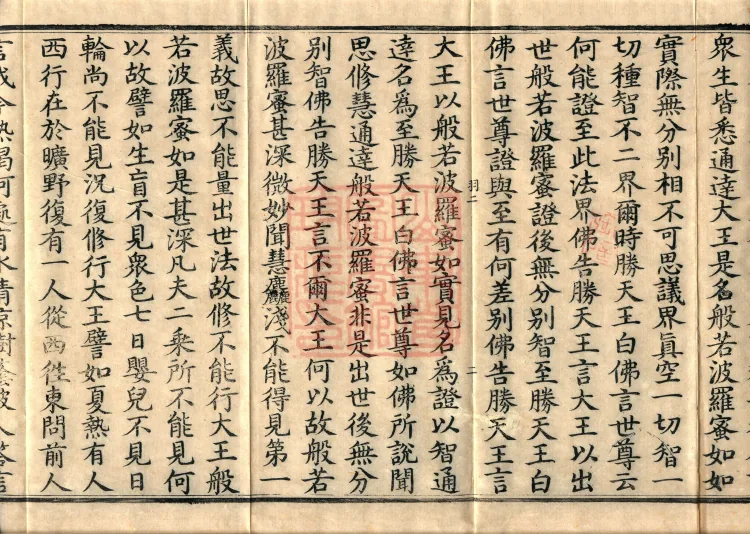 衆生皆悉通達大王是名般若波羅蜜如如
實際無分别相不可思議界眞空一切智一
切種智不二界爾時勝天王白佛言世尊云
何能證至此法界佛告勝天王言大王以出
世般若波羅蜜證後無分别智至勝天王白
佛言世尊證與至有何差别佛告勝天王言
羽二 二
大王以般若波羅蜜如實見名為證以智通
達名為至勝天王白佛言世尊如佛所說聞
思修慧通達般若波羅蜜非是出世後無分
别智佛告勝天王言不爾大王何以故般若
波羅蜜甚深微妙聞慧麤淺不能得見第一
義故思不能量出世法故修不能行大王般
若波羅蜜如是甚深凡夫二乘所不能見何
以故譬如生盲不見衆色七日嬰兒不見日
輪尚不能見況復修行大王譬如夏熱有人
西行在於曠野復有一人從西徃東問前人
言我今熱渴何處有水清凉樹蔭彼人答言